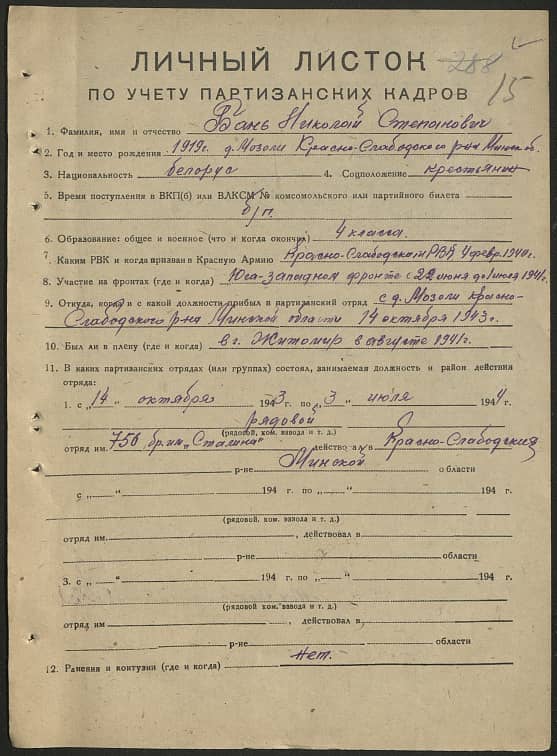 288
15
ЛИЧНЫЙ ЛИСТОК
ПО УЧЕТУ ПАРТИЗАНСКИХ КАДРОВ
1. Фамилия, имя и отчество Вань Николай Степанович
2. Год и место рождения 1919г. д. Мозоли Красно-Слабодского р-на Минск об.
3. Национальность белорус 4. Соцположение крестьянин
5. Время поступления в ВКП(б) или ВЛКСМ № комсомольского или партийного билета
б/п.
6. Образование: общее и военное (что и когда окончил) 4 класса.
7. Каким РВК и когда призван в Красную Армию Красно-Слабодским РВК 4 февр. 1940г.
8. Участие на фронтах (где и когда) Юго-западном фронте с 22 июня до 1 июля 1941г.
9. Откуда, когда и с какой должности прибыл в партизанский отряд с д. Мозоли Красно-
Слабодского р-на Минской области 14 октября 1943г.
10. Был ли в плену (где и когда) в г. Житомир в августе 1941г.
11. В каких партизанских отрядах (или группах) состоял, занимаемая должность и район действия
отряда:
1. с „14“ октября 1943 г. по „3“ июля 1944 г.
рядовой
(рядовой, ком. взвода и т. д.)
отряд им. 756 бр. им „Сталина“ действовал в Красно-Слабодский
р-не Минской области
с „ “ 194 г. по „ “ 194 г.
(рядовой, ком. взвода и т. д.)
отряд им. , действовал в
р-не области
3. с „ “ 194 г. по „ “ 194 г.
(рядовой, ком. взвода и т. д.)
отряд им. , действовал в
р-не области
12. Ранения и контузии (где и когда) нет.